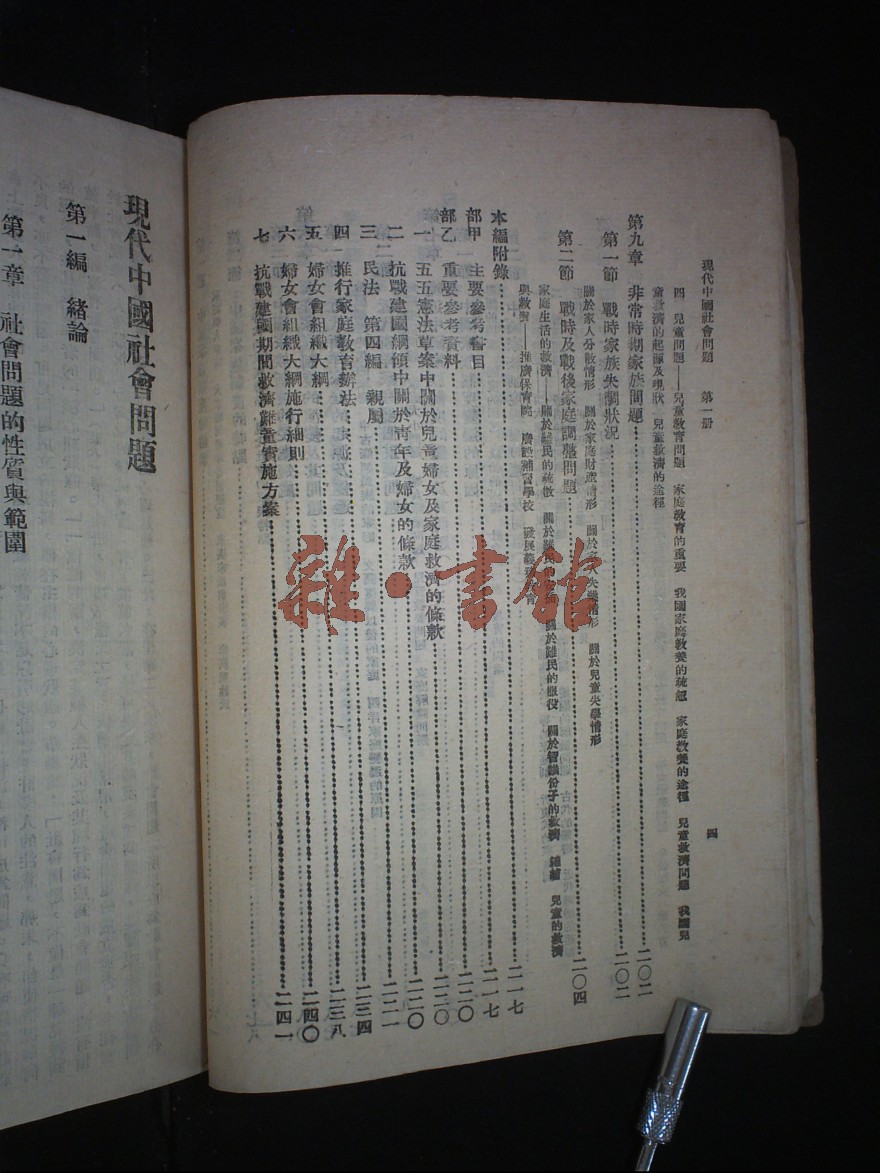 現代中國社會問題　第一册
四
四　兒童問題——兒童教育問題　家庭教育的重要　我國家庭教養的疏忽　家庭教養的途徑　兒童救濟問題　我國兒
童救濟的起源及現狀　兒童救濟的途徑
第九章　非常時期家族問題　二〇二
第一節　戰時家族失調狀況　二〇二
關於家人分散情形　關於家庭財產情形　關於家人失業情形　關於兒童失學情形
第二節　戰時及戰後家庭調整問題　二〇四
家庭生活的救濟——關於難民的疏散　關於難民的　關於難民的服役　關於智識份子的救濟　兒童的救濟
與教養——推廣保育院　廣設補習學校
本編附錄　二一七
部甲　主要參考書目　二一七
部乙　重要參考資料　二二〇
一　五五憲法草案中關於兒童婦女及家庭救濟的條款　二二〇
二　抗戰建國綱領中關於青年及婦女的條款　二二〇
三　民法　第四編　親屬　二二一
四　推行家庭教育辦法　二三四
五　婦女會組織大綱　二三八
六　婦女會組織大綱施行細則　二四〇
七　抗戰建國期間救濟難童實施方案　二四一
現代中國社會問題
第一編　緒論
第一章　社會問題的性質與範圍
雜·書館